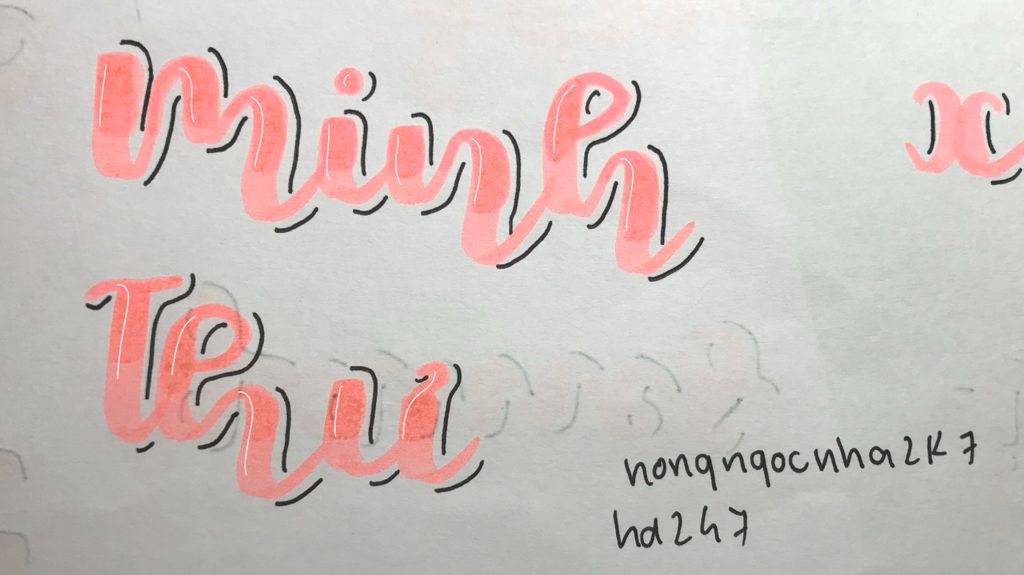 minh
x
Thư
nongngocnha2k7
hd247